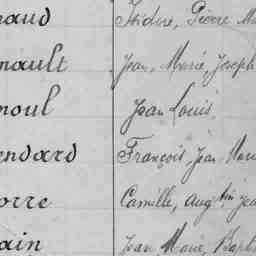 naud Isidore, Pierre Ma
nault Jean, Marie, Joseph
noul Jean Louis
endard François, Jean Marie
orre Camille, Augtin, Jea
ain Jean Marie, Bapti